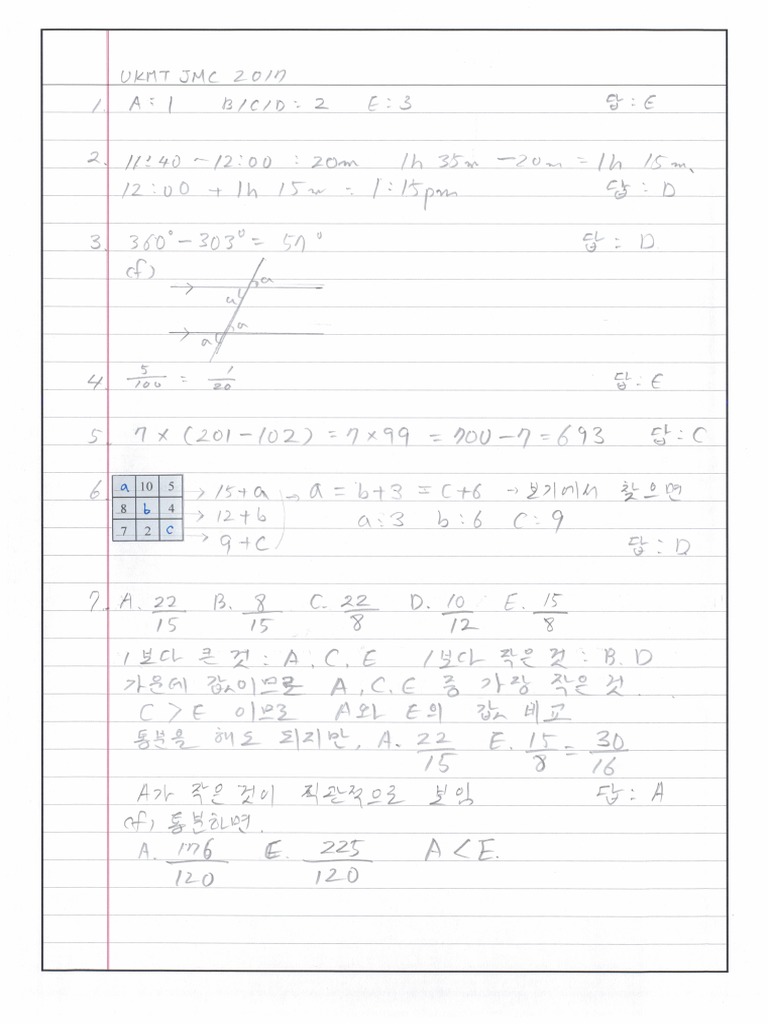 UKMT JMC 2017
1. A : 1 B/C/D : 2 E : 3 답 : E
2. 11:40 ~ 12:00 : 20m 1h 35m - 20m = 1h 15m,
12:00 + 1h 15m = 1:15pm 답 : D
3. 360° - 303° = 57° 답 : D
cf)
a
a
a
a
4. 5/100 = 1/20 답 : E
5. 7 × (201 - 102) = 7 × 99 = 700 - 7 = 693 답 : C
6. a 10 5 → 15 + a → a = b + 3 = c + 6 → 보기에서 찾으면
8 b 4 → 12 + b a : 3 b : 6 c : 9
7 2 c → 9 + c
답 : D
7. A. 22/15 B. 8/15 C. 22/8 D. 10/12 E. 15/8
1보다 큰 것 : A, C, E 1보다 작은 것 : B. D
가운데 값이므로 A, C, E 중 가장 작은 것.
C > E 이므로 A와 E의 값 비교
통분을 해도 되지만, A. 22/15 E. 15/8 = 30/16
A가 작은 것이 직관적으로 보임 답 : A
cf) 통분하면.
A. 176/120 E. 225/120 A < E.